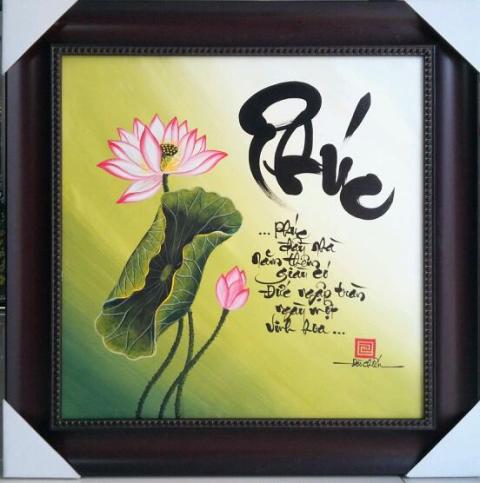 Phúc
... Phúc
đầy nhà
năm thêm
giàu có
Đức ngập tràn
ngày một
vinh hoa ...